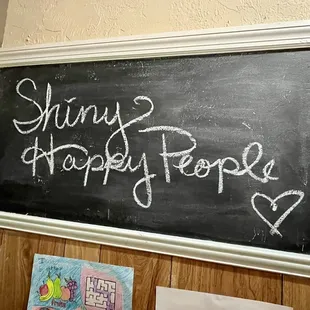 Shiny
Happy People